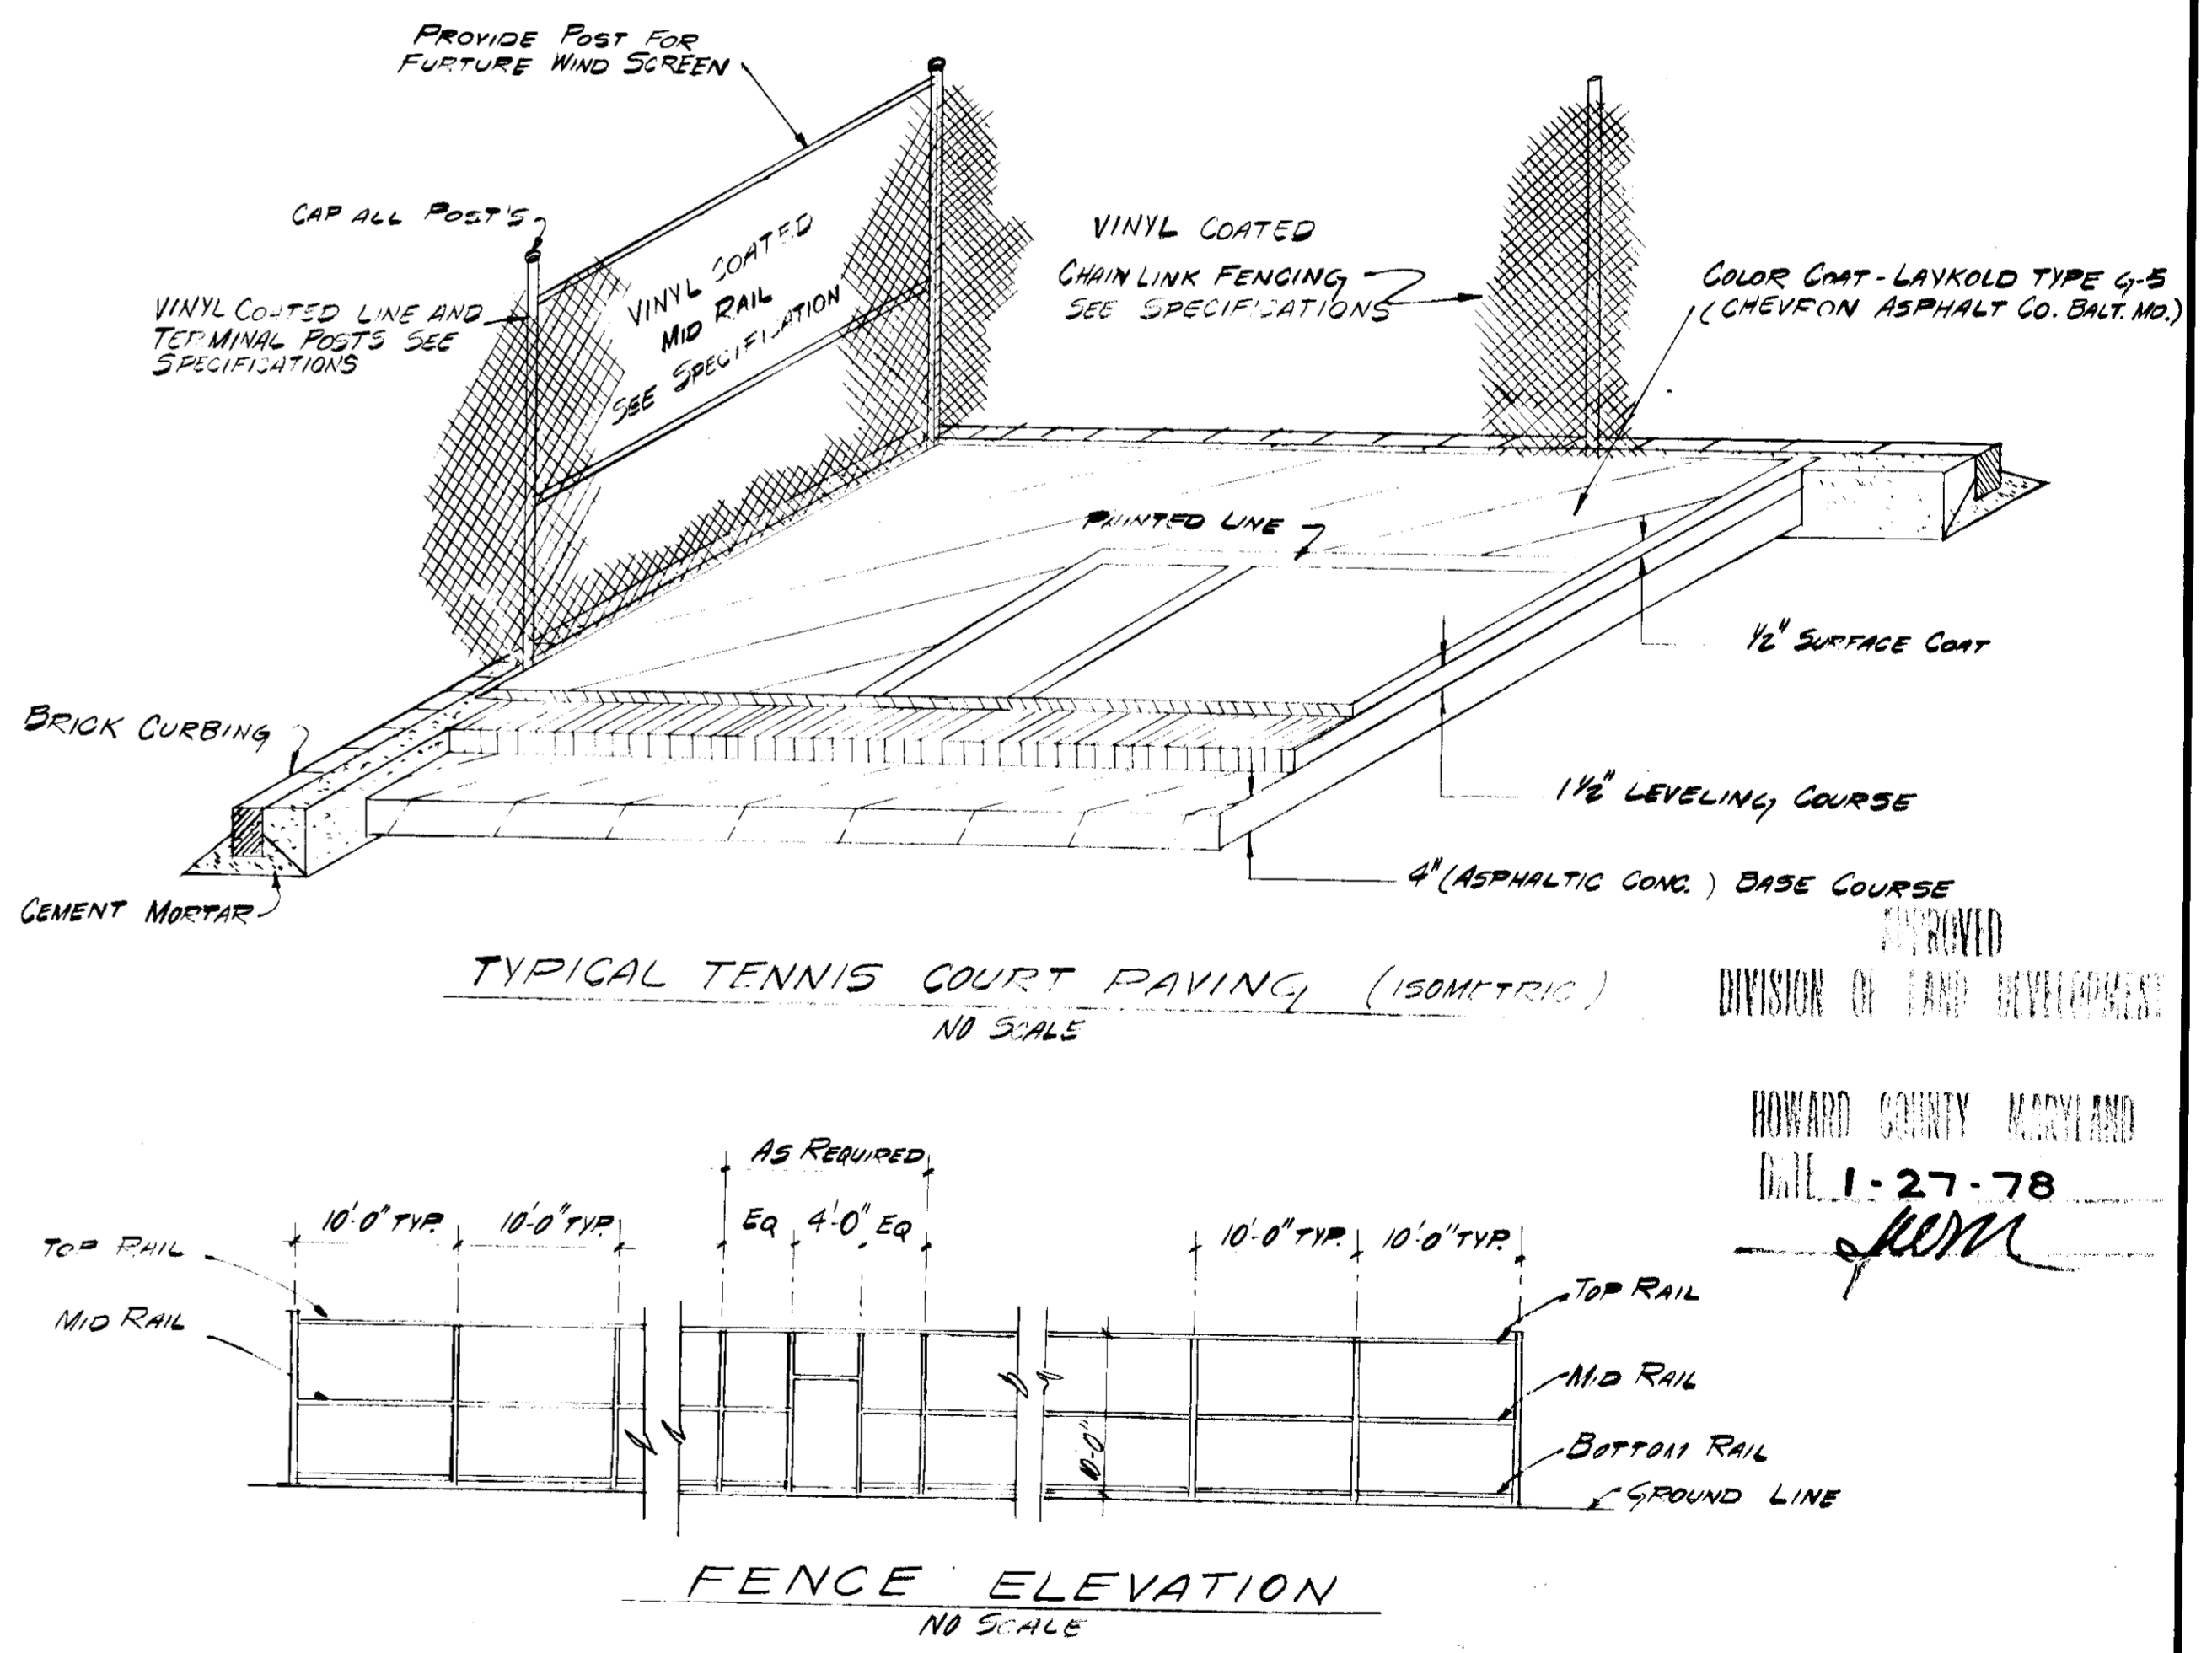 PROVIDE POST FOR
FURTURE WIND SCREEN
CAP ALL POST'S
VINYL COATED LINE AND
TERMINAL POSTS SEE
SPECIFICATIONS
VINYL COATED
MID RAIL
SEE SPECIFICATION
VINYL COATED
CHAIN LINK FENCING
SEE SPECIFICATIONS
COLOR COAT - LAYKOLD TYPE G-5
(CHEVRON ASPHALT CO. BALT. MD.)
PAINTED LINE
1/2" SURFACE COAT
BRICK CURBING
1 1/2" LEVELING COURSE
4" (ASPHALTIC CONC.) BASE COURSE
CEMENT MORTAR
TYPICAL TENNIS COURT PAVING (ISOMETRIC)
NO SCALE
APPROVED
DIVISION OF LAND DEVELOPMENT
HOWARD COUNTY MARYLAND
DATE 1-27-78
AS REQUIRED
10'-0" TYP. 10'-0" TYP. EQ 4'-0" EQ 10'-0" TYP. 10'-0" TYP.
TOP RAIL
MID RAIL
TOP RAIL
MID RAIL
10'-0"
BOTTOM RAIL
GROUND LINE
FENCE ELEVATION
NO SCALE